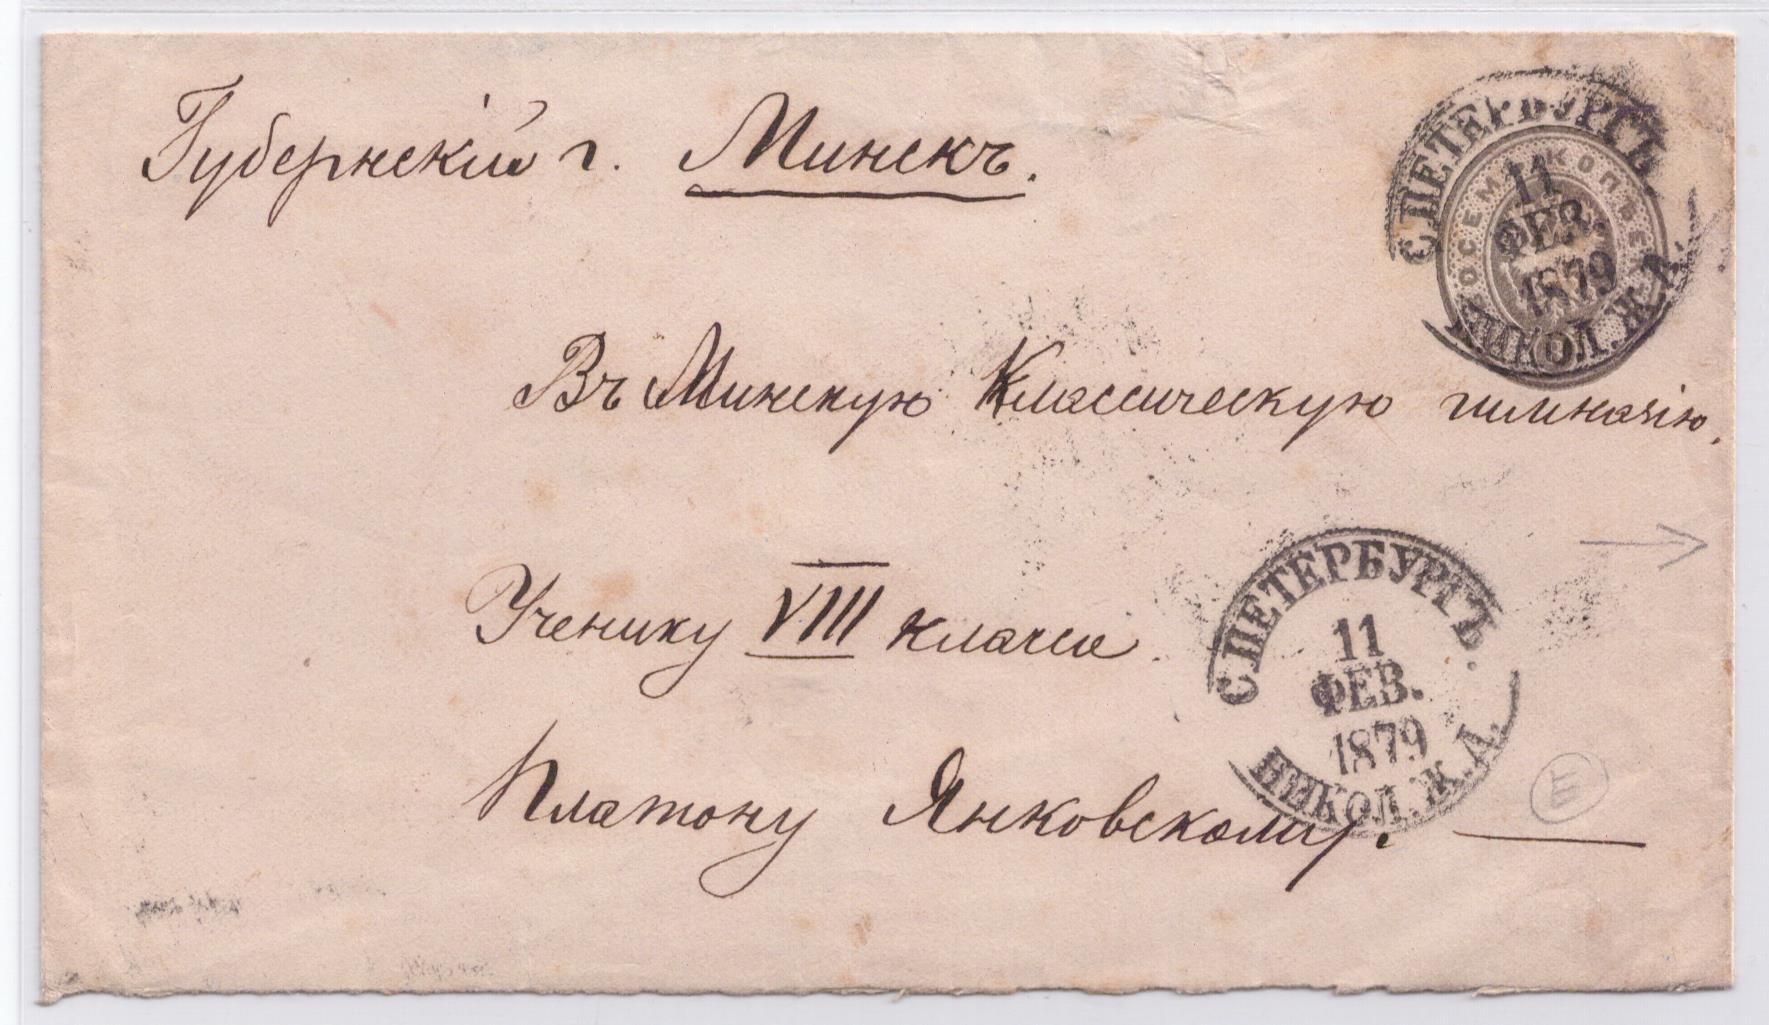 Губернскій г. Минскъ.
С.ПЕТЕРБУРГЪ.
ВОСЕМЬ КОПѢЕКЪ
11
ФЕВ.
1879
НИКОЛ.Ж.Д.
Въ Минскую Классическую гимназію.
Ученику VIII класса.
С.ПЕТЕРБУРГЪ.
11
ФЕВ.
1879
НИКОЛ.Ж.Д.
Платону Янковскому.
E